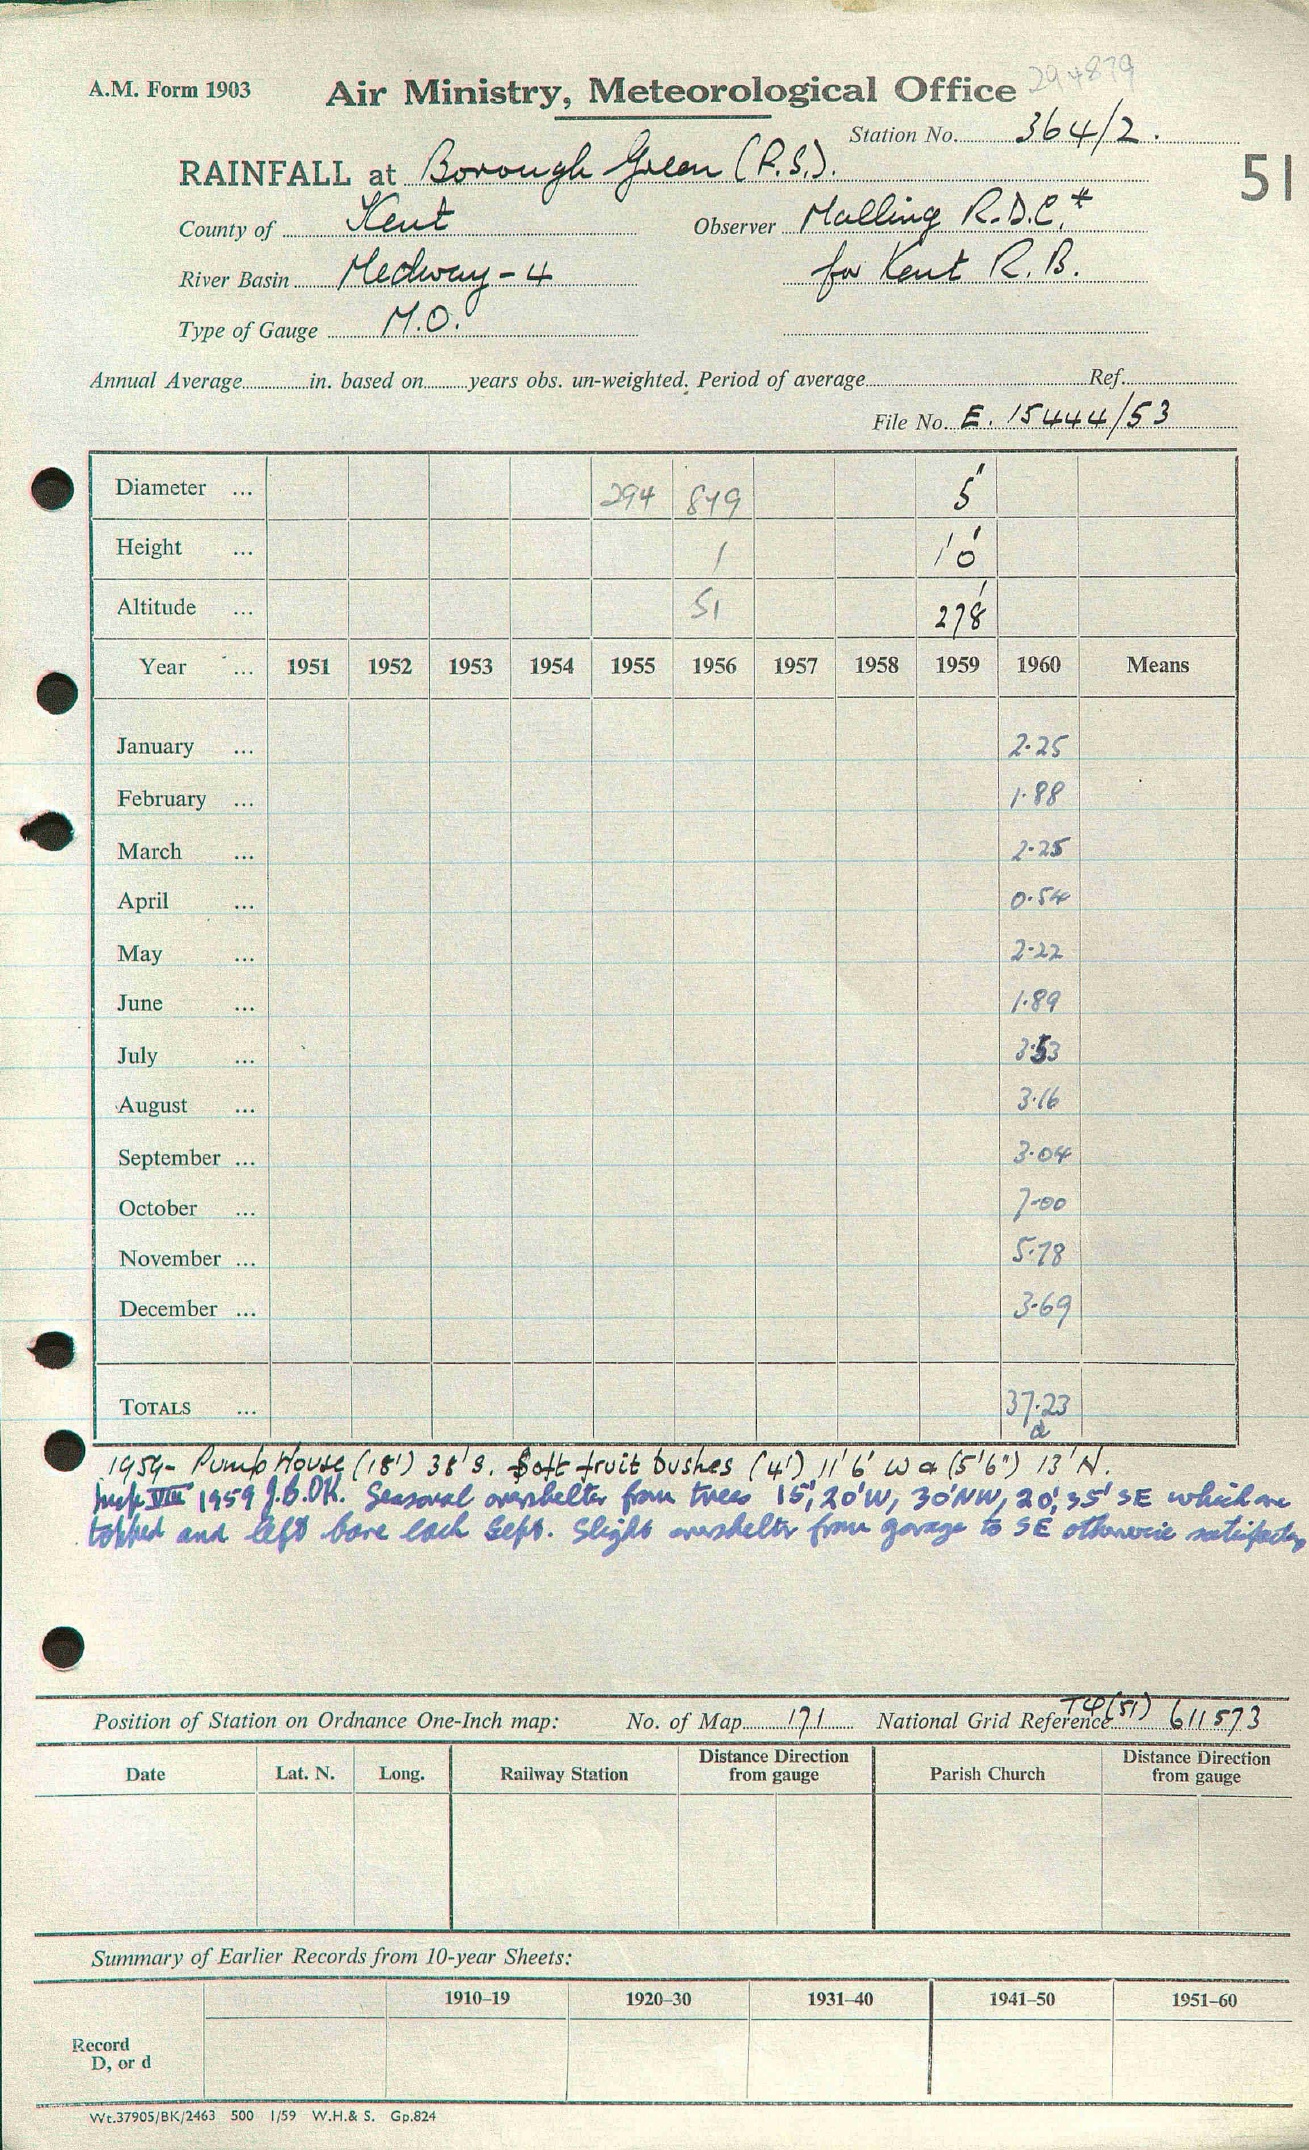 294879
A.M. Form 1903 Air Ministry, Meteorological Office
Station No. 364/2.
RAINFALL at Borough Green (R.S.).
51
County of Kent Observer Malling R.D.C.*
River Basin Medway - 4 for Kent R.B.
Type of Gauge M.O.
Annual Average in. based on years obs. un-weighted. Period of average Ref.
File No. E. 15444/53
Diameter ... 294 879 5"
Height ... 1 1'0"
Altitude ... 51 278'
Year ... 1951 1952 1953 1954 1955 1956 1957 1958 1959 1960 Means
January ... 2.25
February ... 1.88
March ... 2.25
April ... 0.54
May ... 2.22
June ... 1.89
July ... 3.53
August ... 3.16
September ... 3.04
October ... 7.00
November ... 5.78
December ... 3.69
TOTALS ... 37.23
d
1959- Pump House (18') 38' S. Soft fruit bushes (4') 11'6" W & (5'6") 13' N.
Insp VIII 1959 J.B. OK. Seasonal overshelter from trees 15', 20' W, 30' NW, 20', 35' SE which are
topped and left bare each Sept. Slight overshelter from garage to SE otherwise satisfactory
Position of Station on Ordnance One-Inch map: No. of Map 171 National Grid Reference TQ(51) 611573
Date Lat. N. Long. Railway Station Distance Direction from gauge Parish Church Distance Direction from gauge
Summary of Earlier Records from 10-year Sheets:
1910–19 1920–30 1931–40 1941–50 1951–60
Record
D, or d
Wt.37905/BK/2463 500 1/59 W.H.& S. Gp.824